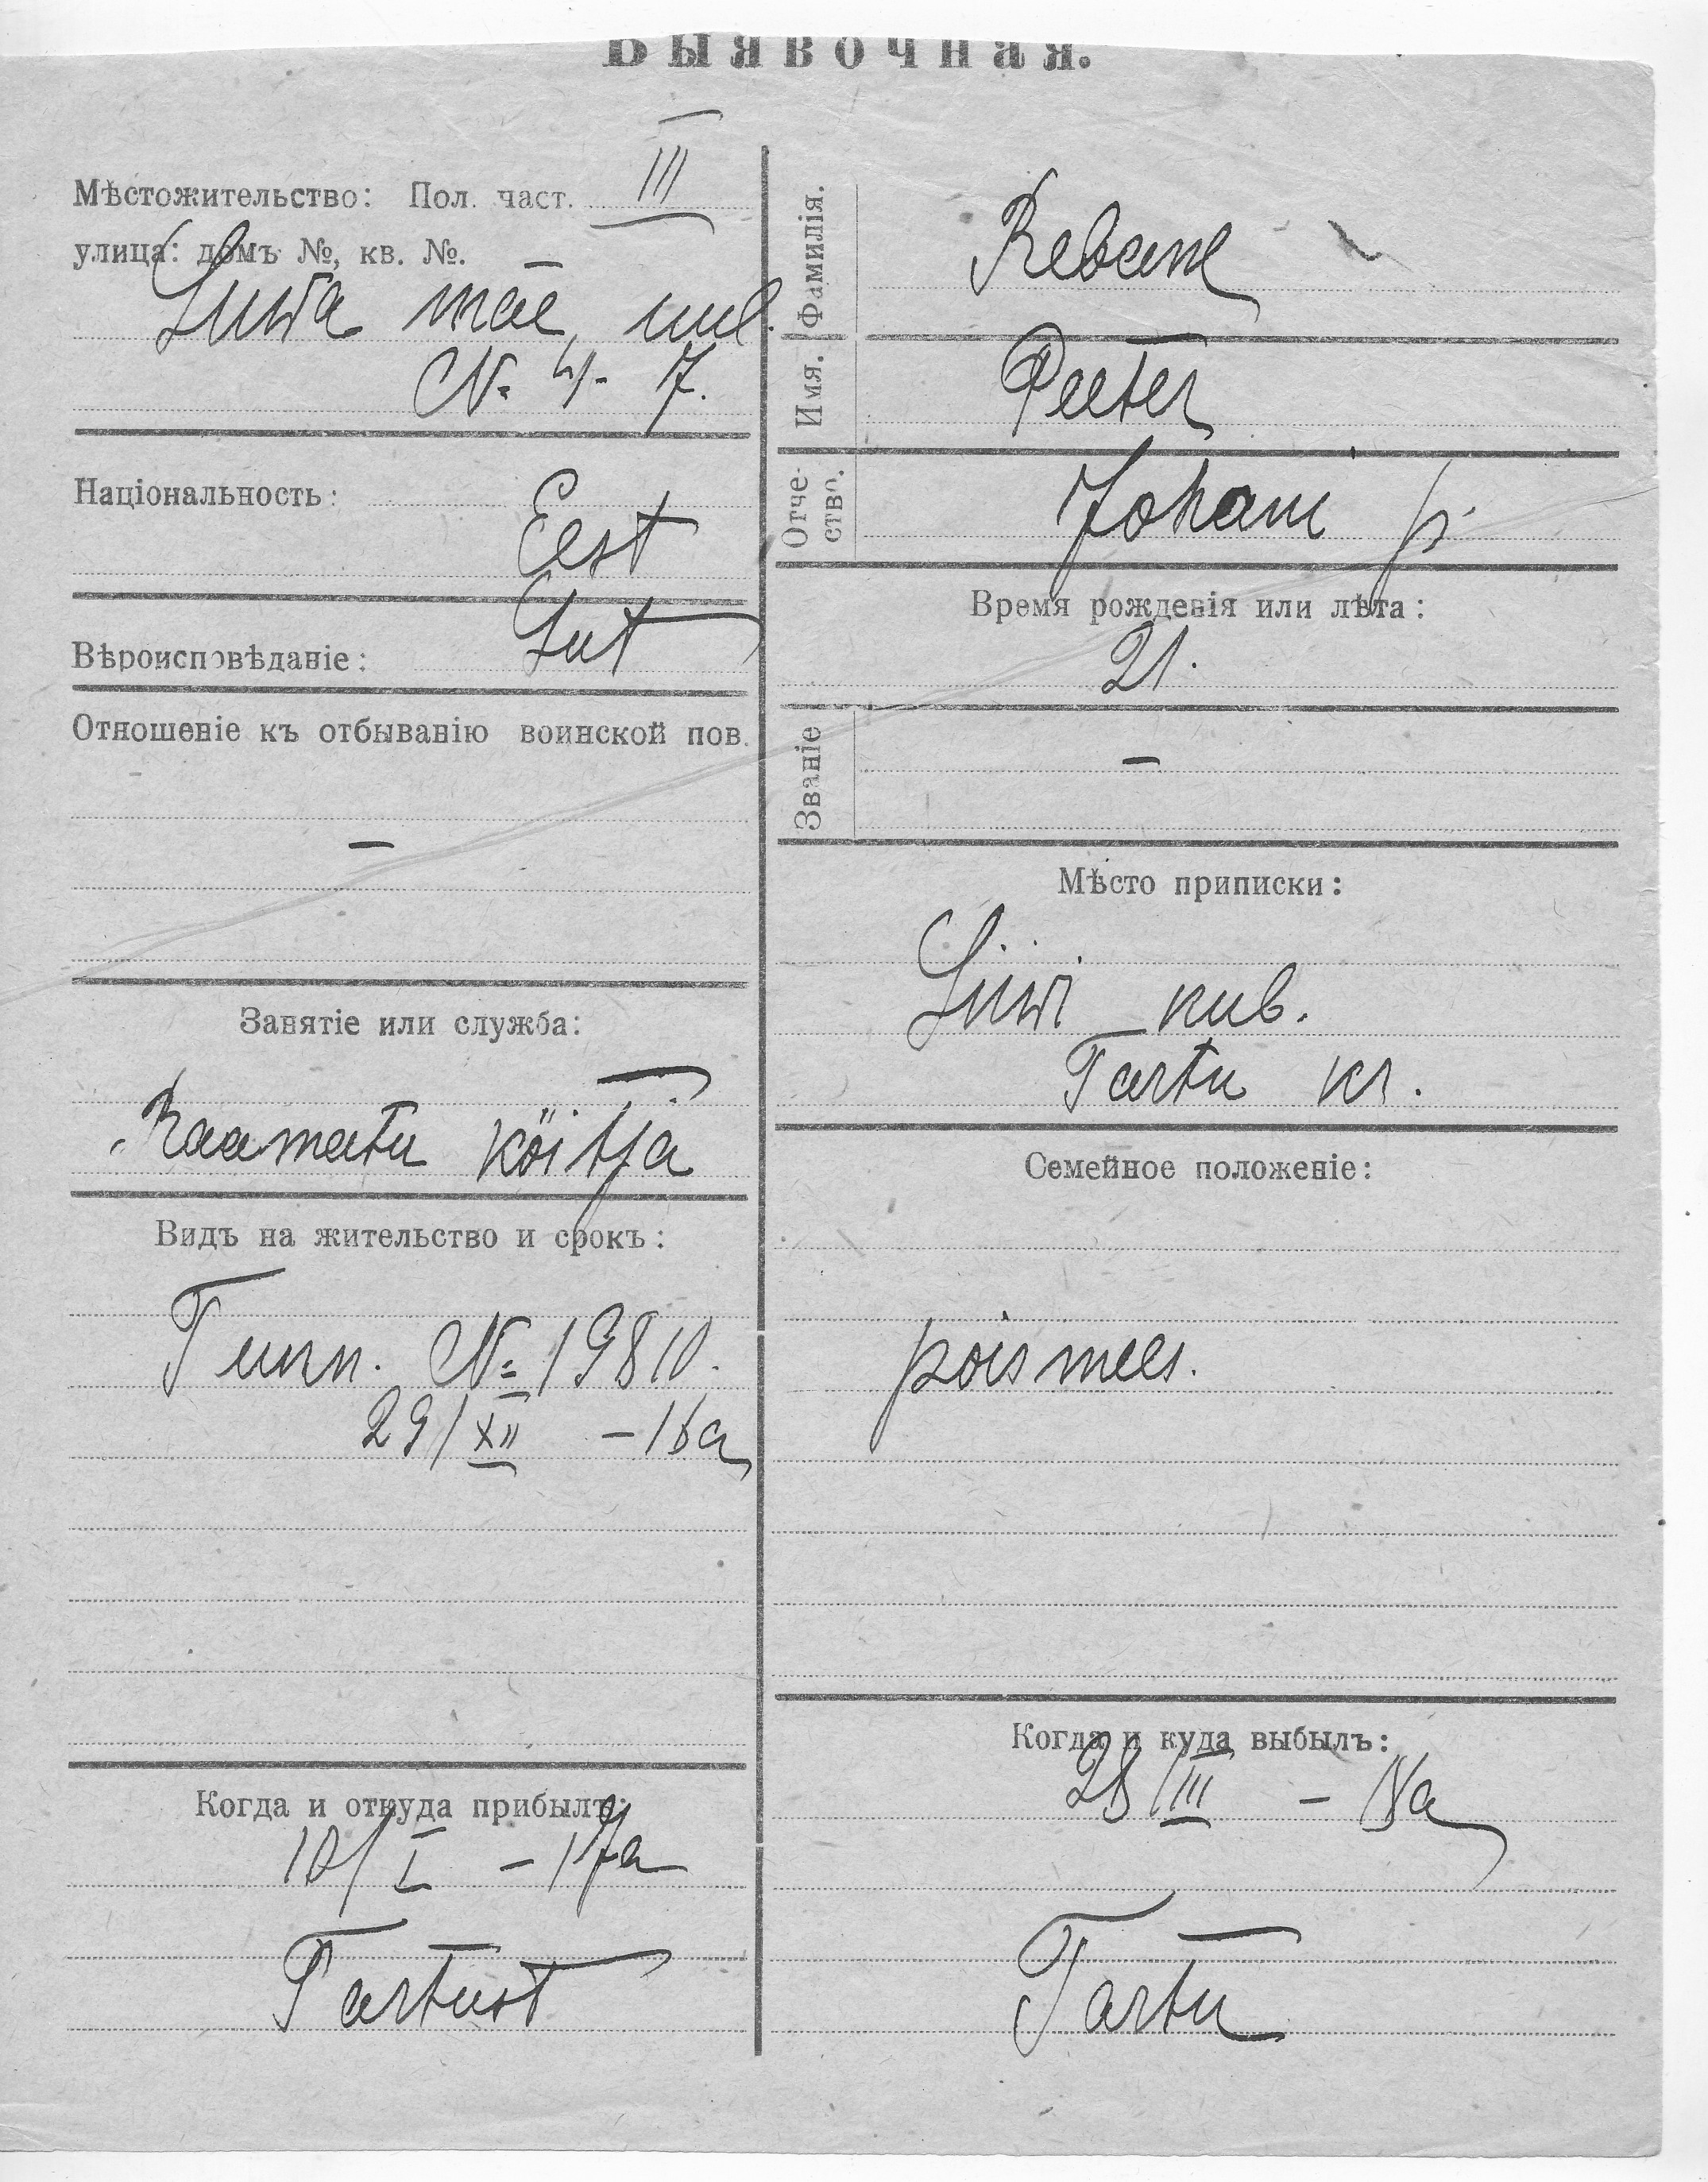 Выявочная.
Мѣстожительство: Пол. част. III
улица: домъ №, кв. №.
Liiwa mäe, uul.
№ 4 - 7.
Національность:
Eest
Вѣроисповѣданіе: Lut
Отношеніе къ отбыванію воинской пов.
—
Занятіе или служба:
Raamatu köitja
Видъ на жительство и срокъ:
Tunn. № 19810.
29/XII - 16a
Когда и откуда прибылъ:
10/I - 17a
Tartust
Фамилія. Rebane
Имя. Peeter
Отче-
ство. Johani p.
Время рожденія или лѣта:
21.
Званіе —
Мѣсто приписки:
Liiwi kub.
Tartu kr.
Семейное положеніе:
poismees.
Когда и куда выбылъ:
28/III - 18a
Tartu